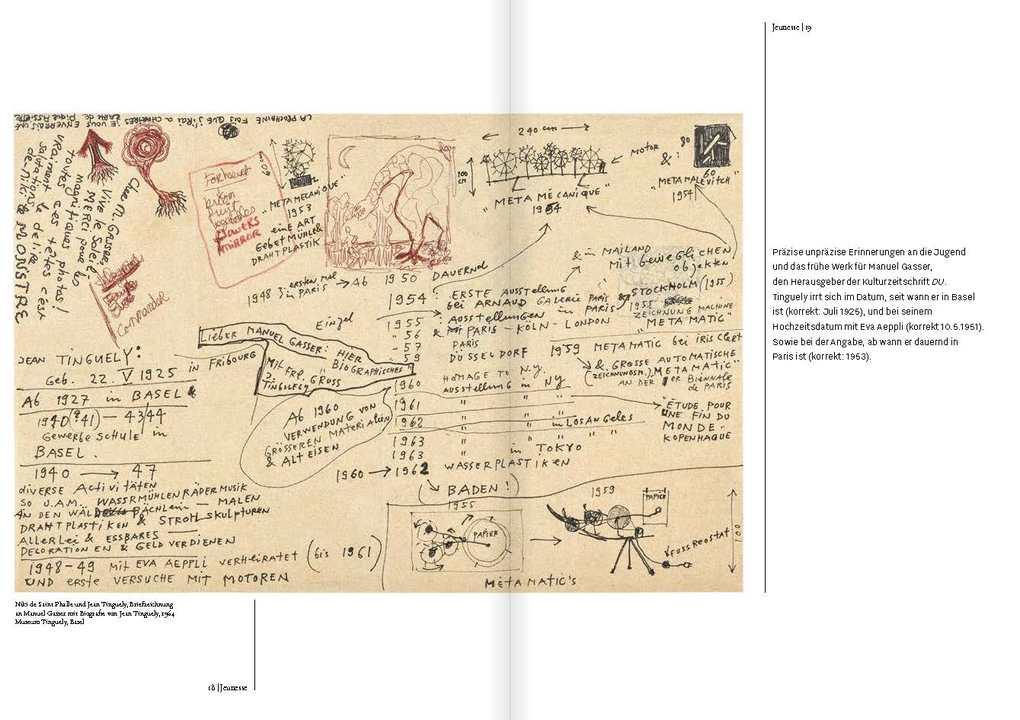 Jeunesse | 19
LA PROCHAINE FOIS QUE J'IRAI A CHARTRES
JE VOUS ENVERRAIS UNE CARTE de PIQUE ASSIETTE
Cher M. Gasser,
Vive le Soleil
MERCI pour les
magnifiques photos!
toutes ces têtes c'est
vraiment le délire
salutations
de Niki & MONSTRE
240 cm
MOTOR
&:
80
60
"META MÉCANIQUE"
1954
"METAMALEVITCH"
1954
"META MECANIQUE"
1953
EINE ART
GEBET MÜHLE &
DRAHTPLASTIK
1948 ersten mal in PARIS → Ab 1950 DAUERND
& in MAILAND
Mit Beweglichen
Objekten
1954: ERSTE AUSSTELLUNG
bei ARNAUD GALERIE PARIS & STOCKHOLM (1955)
Einzel
1955 : Ausstellungen in PARIS
" 56 & PARIS - KÖLN - LONDON
- 57 PARIS
- 59 DÜSSELDORF
1955
ZEICHNUNG MACHINE
"META MATIC"
1959 METAMATIC bei IRIS CLERT
& GROSSE AUTOMATISCHE
(ZEICHNUNGSM.) "METAMATIC"
AN DER 1er BIENNALE
de PARIS
LIEBER MANUEL GASSER: HIER
BIOGRAPHISCHES
Mit FRD. GRUSS
J. TINGUELY
JEAN TINGUELY:
Geb. 22. V 1925 in FRIBOURG
Ab 1927 in BASEL &
1940 (?41) — 43/44
Gewerbe Schule in
BASEL.
1940 → 47
diverse Activitäten
SO U.A.M. WASSRMÜHLENRÄDERMUSIK
AN DEN WALDBÄCHLEIN — MALEN
DRAHTPLASTIKEN & STROH SKULPTUREN
Allerlei & ESSBARES
DECORATIONEN & GELD VERDIENEN
1948-49 MIT EVA AEPPLI VERHEIRATET (bis 1961)
UND erste VERSUCHE MIT MOTOREN
Ab 1960
VERWENDUNG VON
GRÖSSEREN MATERIALIEN
& ALTEISEN
1960 HOMAGE TO N.Y.
AUSSTELLUNG in NY
1961 " " "
1962 " " in LOS ANGELES
1963 " " "
1963 " in TOKYO
"ETUDE POUR
UNE FIN DU
MONDE -
KOPENHAGUE
1960 → 1962 WASSERPLASTIKEN
(↘ BADEN!)
1955
PAPIER
1959
PAPIER
METAMATIC'S
Präzise unpräzise Erinnerungen an die Jugend
und das frühe Werk für Manuel Gasser,
den Herausgeber der Kulturzeitschrift DU.
Tinguely irrt sich im Datum, seit wann er in Basel
ist (korrekt: Juli 1925), und bei seinem
Hochzeitsdatum mit Eva Aeppli (korrekt 10.5.1951).
Sowie bei der Angabe, ab wann er dauernd in
Paris ist (korrekt: 1963).
Niki de Saint Phalle und Jean Tinguely, Briefzeichnung
an Manuel Gasser mit Biografie von Jean Tinguely, 1964
Museum Tinguely, Basel
18 | Jeunesse